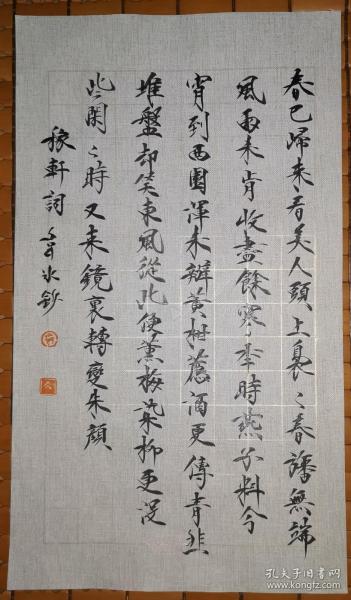 春已歸來看美人頭上裊〻春幡無端
風雨未肯收盡餘寒年時燕子料今
宵到西園渾未辦黃柑薦酒更傳青韭
堆盤却笑東風從此便薰梅染柳更没
些閑〻時又來鏡裏轉變朱顏
稼軒詞 冰鈔
孔夫子旧书网